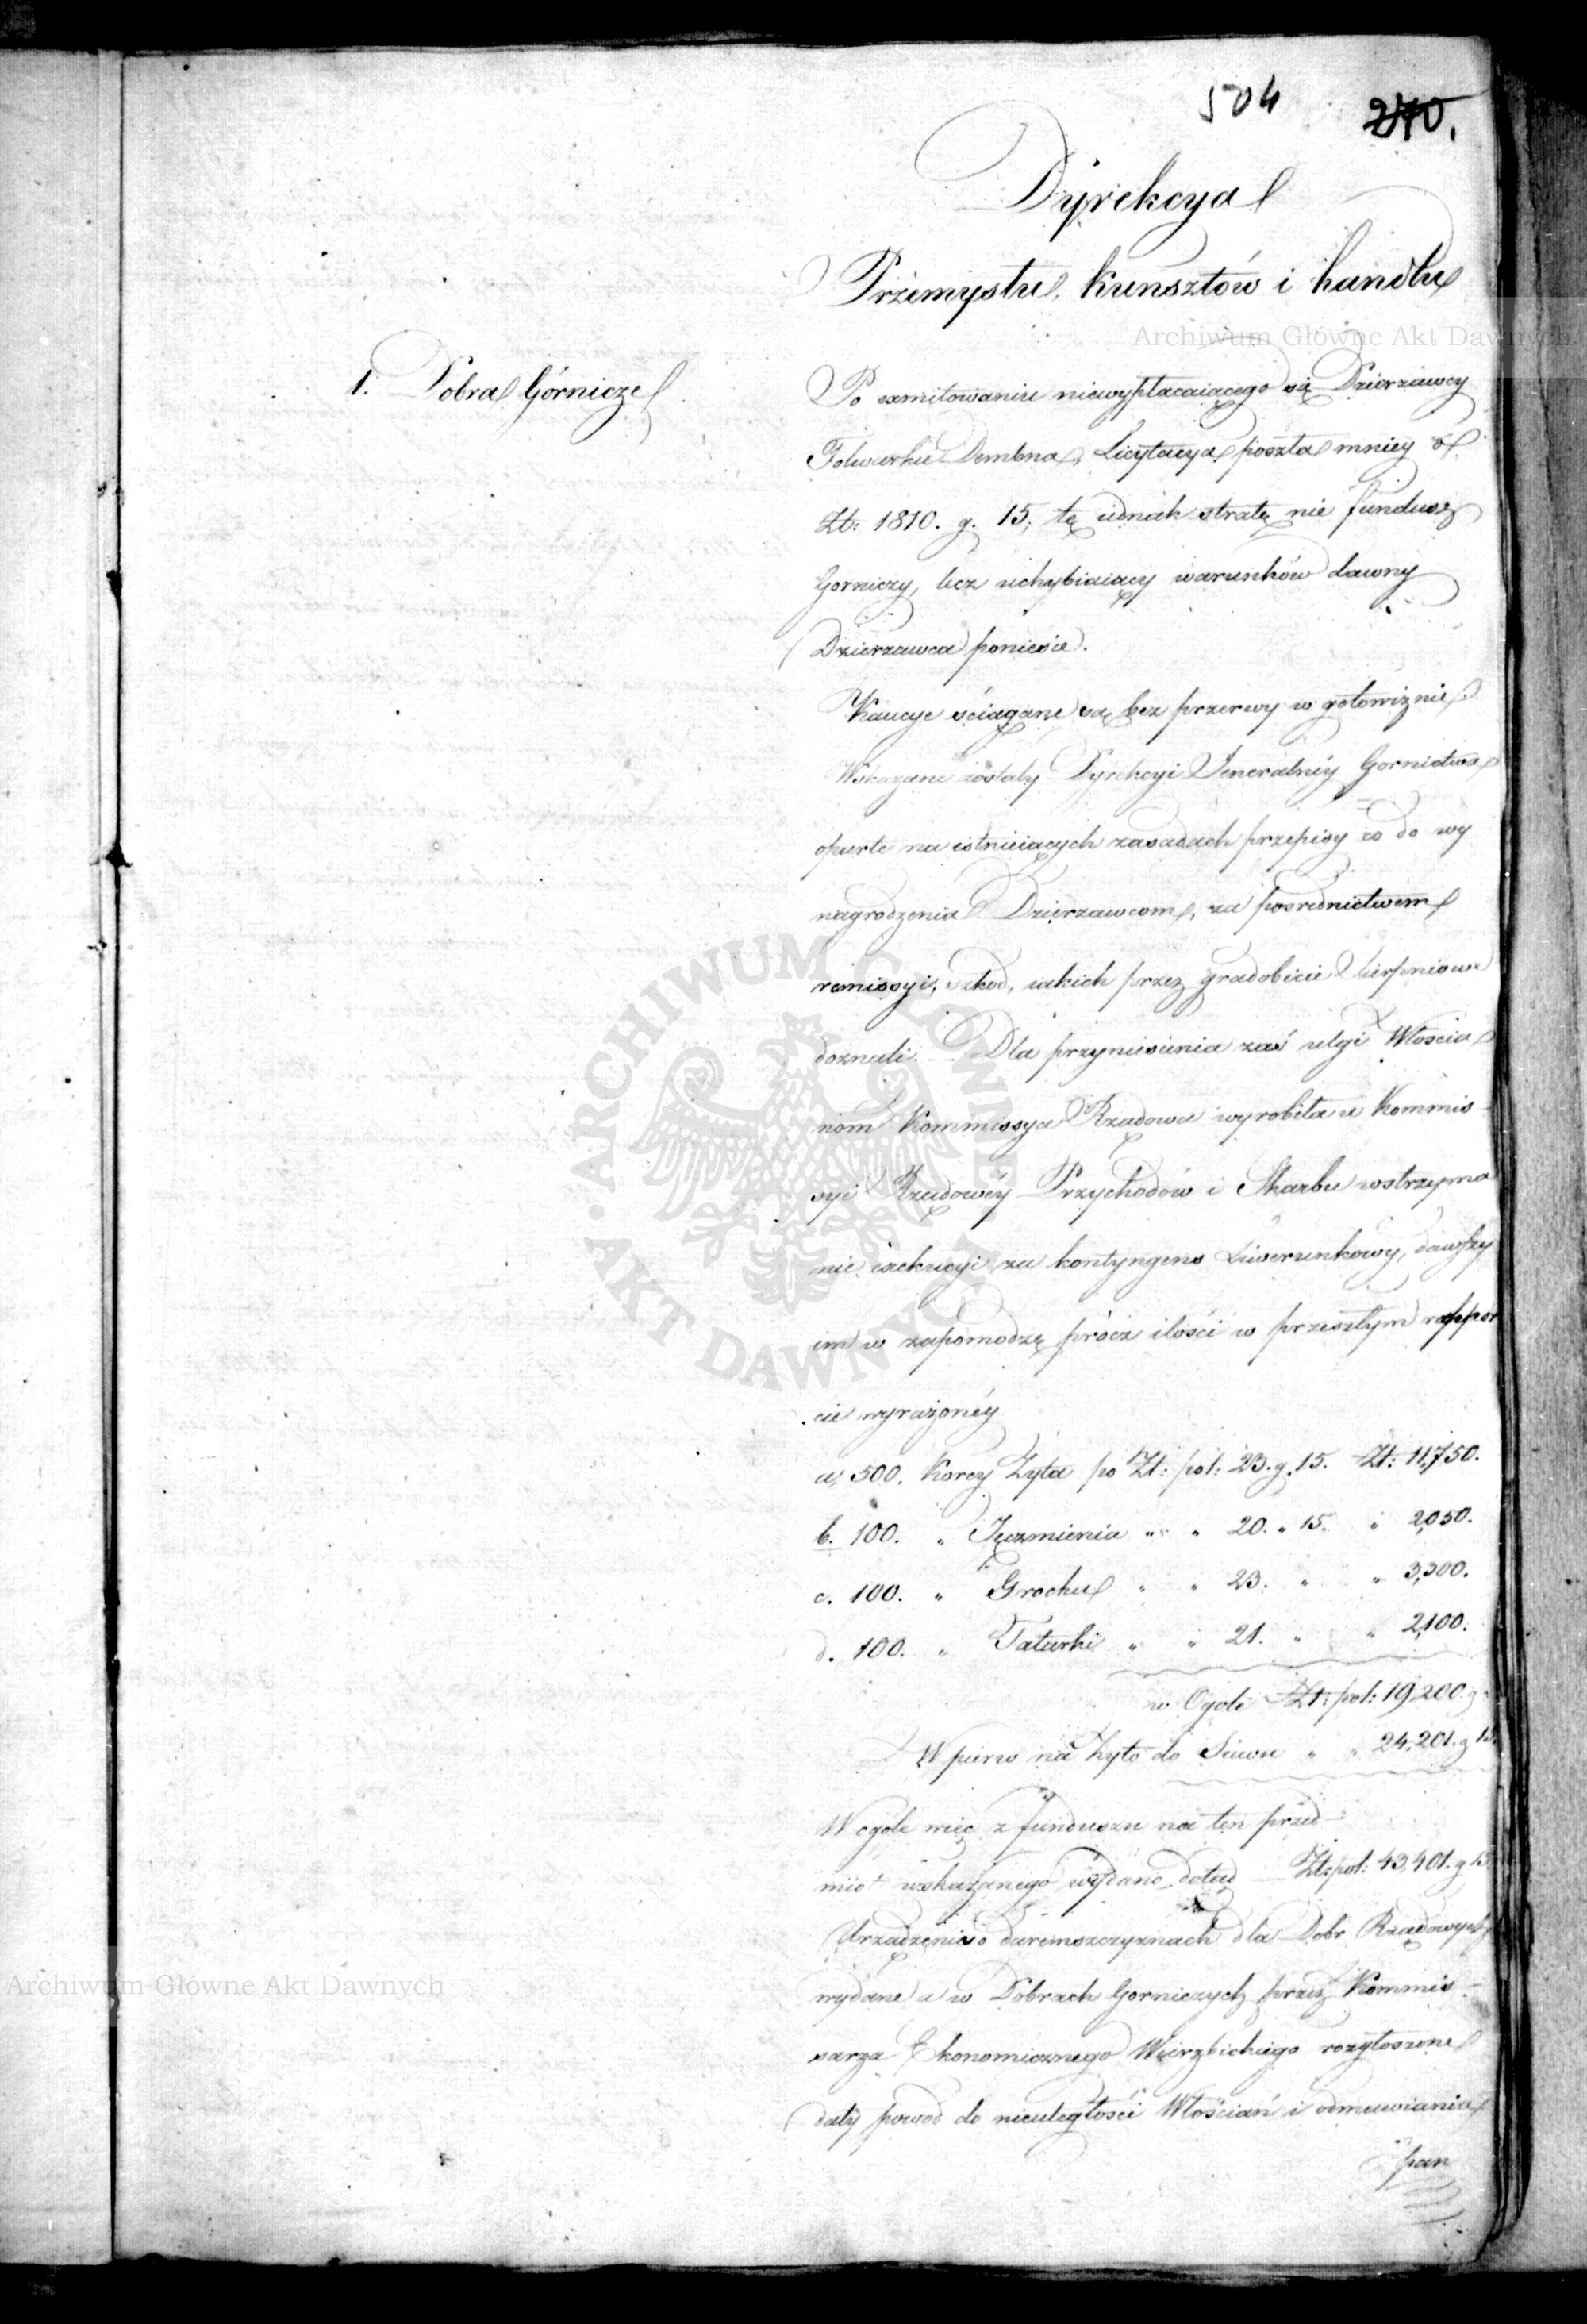 504 270.
Dyrekcya
Przemysłu, Kunsztów i handlu
Archiwum Główne Akt Dawnych
1. Dobra Górnicze
Po exmitowaniu niewypłacaiącego się Dzierżawcy
Folwarku Dembna, Licytacya poszła mniey o
Zł: 1810. g. 15; tę iednak stratę nie fundusz
Gorniczy, lecz uchybiaiący warunków dawny
Dzierzawca poniesie.
Kaucye ściągane są bez przerwy w gotowiznie.
Wskazane zostały Dyrekcyi Jeneralnéy Gornictwa
oparte na istnieiących zasadach przepisy co do wy
nagrodzenia Dzierzawcom, za posrednictwem
remissyi, szkod, iakich przez gradobicie Sierpniowe
doznali. Dla przyniesienia zaś ulgi Włościa
nom Kommissya Rządowa wyrobiła u Kommis-
syi Rządowéy Przychodów i Skarbu wstrzyma
nie exekucyi za kontyngens Liwerunkowy, dawszy
im w zapomodzę prócz ilości w przeszłym rappor
cie wyrażonéy
a, 500. Korcy Żyta po Zł: pol: 23. g. 15. Zł: 11,750.
b. 100. " Jęczmienia " " 20. " 15. " 2,050.
c. 100. " Grochu " " 23. " " 3,300.
d. 100. " Tatarki " " 21. " " 2,100.
w Ogole Zł: pol: 19,200. g
W pierw na żyto do Siewu " " 24,201. g 15.
W ogole więc z funduszu na ten przed-
miot wskazanego wydano dotąd Zł: pol: 43,401. g 15.
Urządzenie o daremszczyznach dla Dobr Rządowych
wydane a w Dobrach Gorniczych przez Kommis-
sarza Ekonomicznego Wierzbickiego rozgłoszone
dały powod do nieuległości Włościan i odmawiania
pan
ARCHIWUM GŁÓWNE AKT DAWNYCH
Archiwum Główne Akt Dawnych